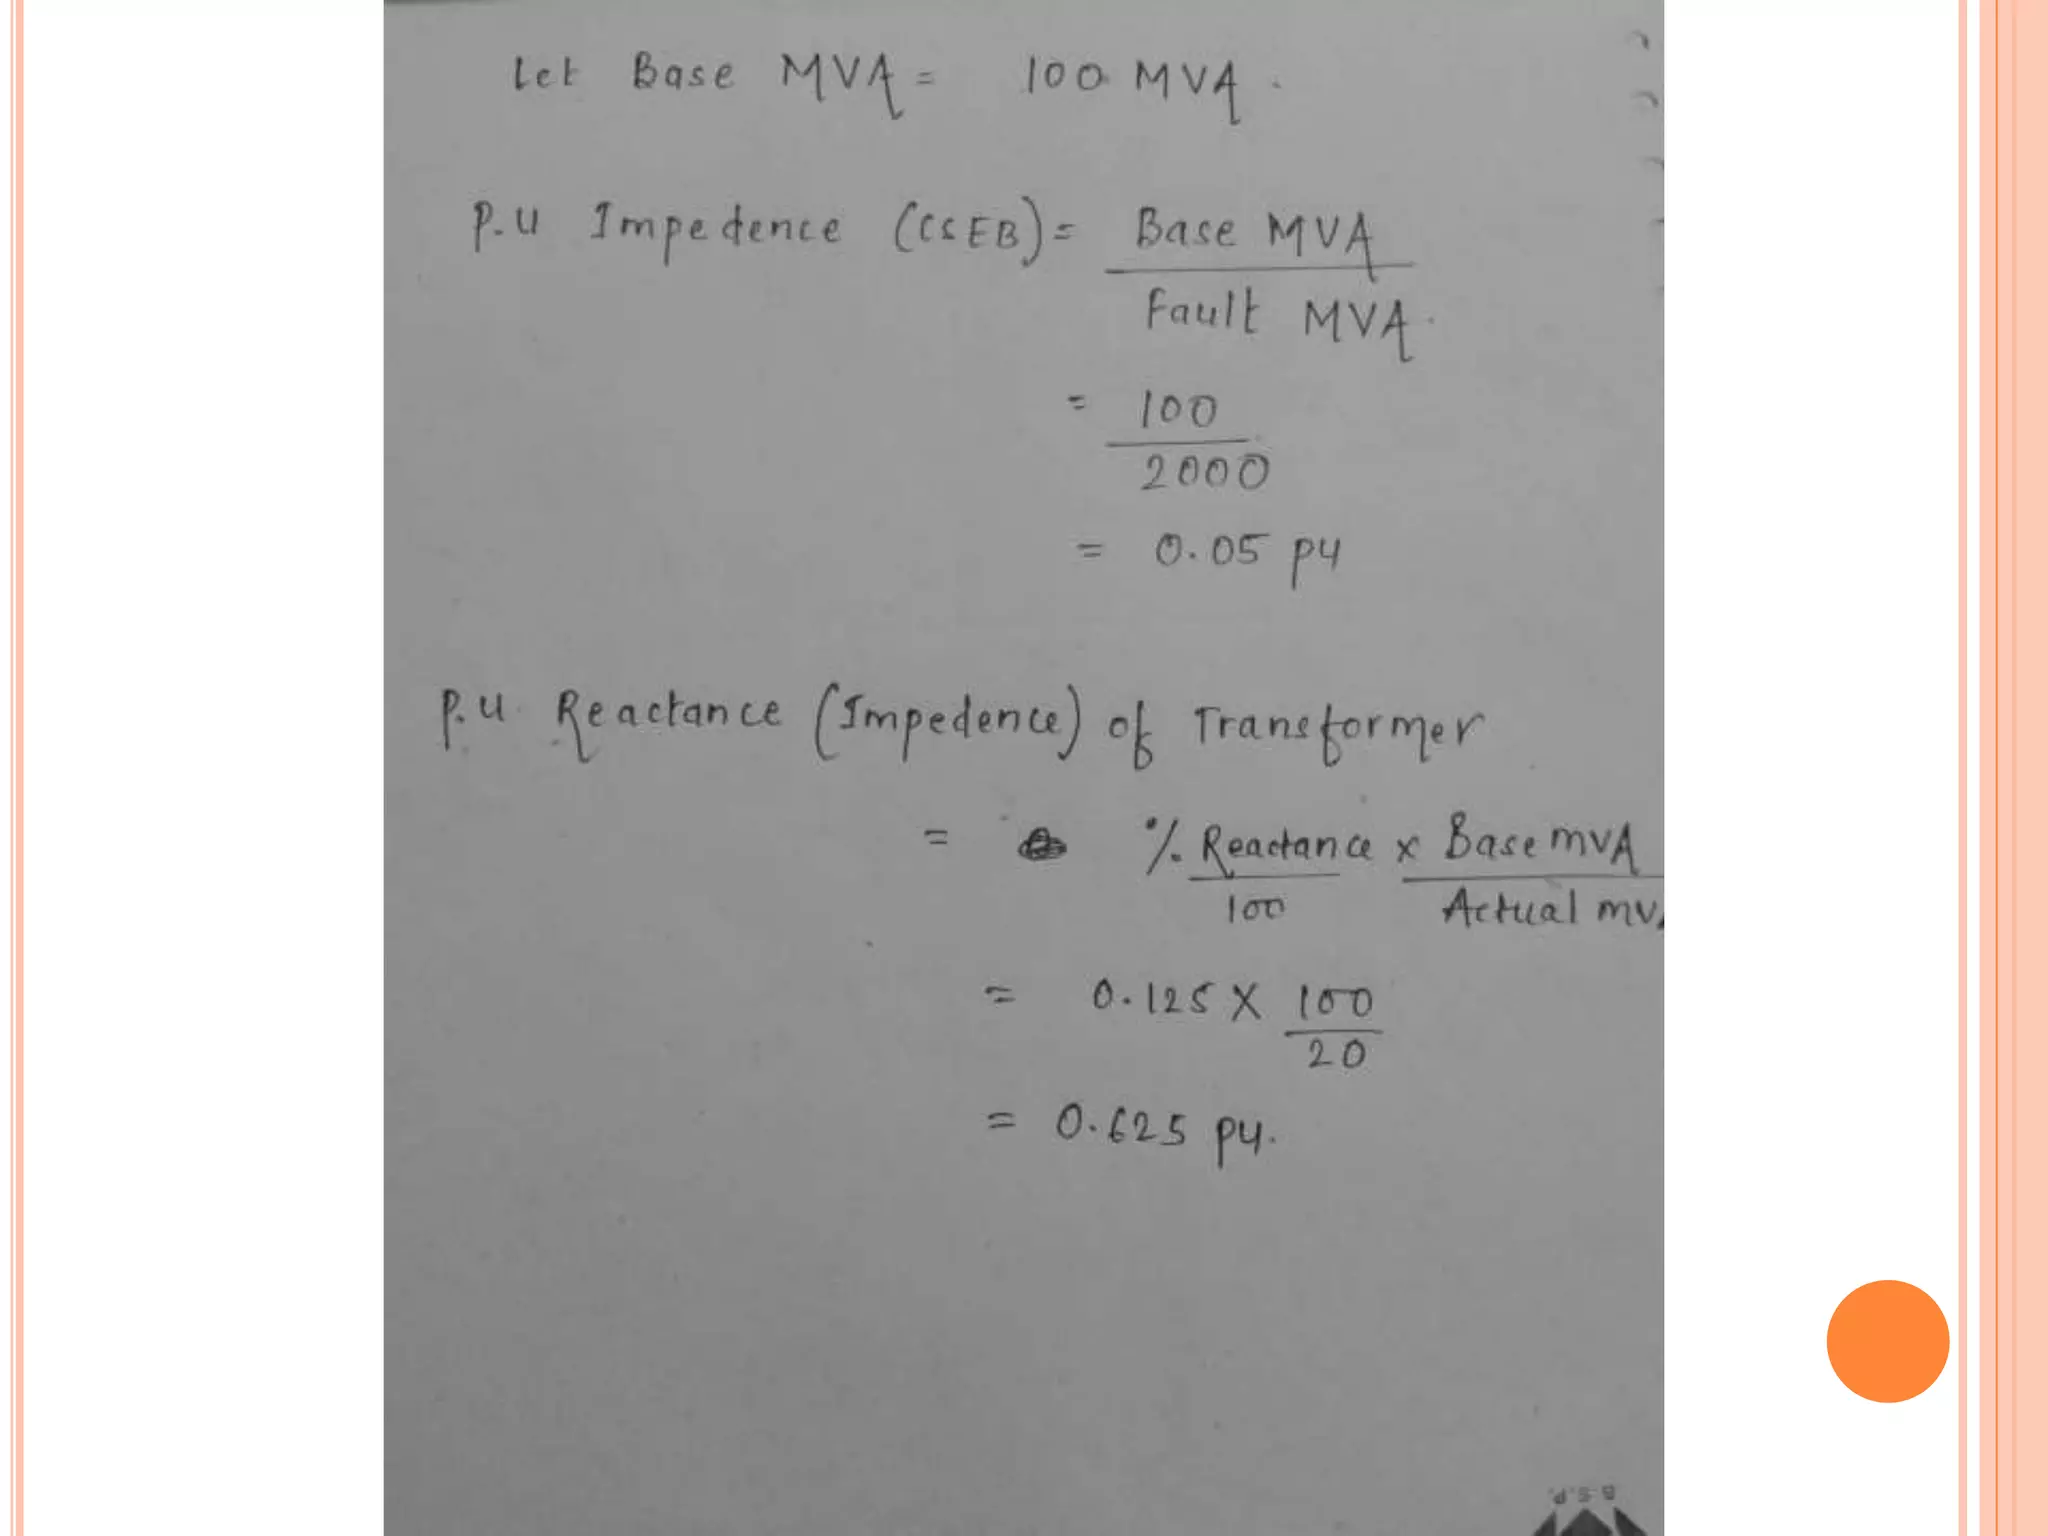 Let Base MVA = 100 MVA.
P.U Impedence (CSEB) = Base MVA
Fault MVA.
= 100
2000
= 0.05 pu
P.U. Reactance (Impedence) of Transformer
= % Reactance x Base MVA
100 Actual MV
= 0.125 X 100
20
= 0.625 pu.
B.S.P.